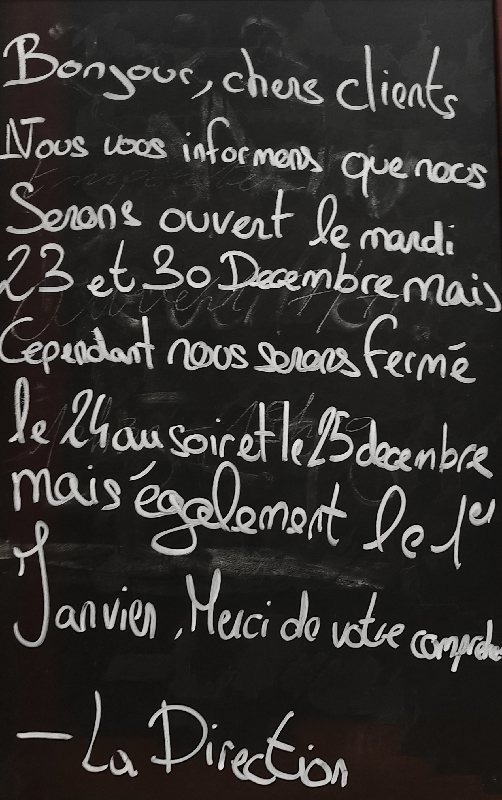 Bonjour, chers clients
Nous vous informons que nous
Serons ouvert le mardi
23 et 30 Decembre mais
Cependant nous serons fermé
le 24 au soir et le 25 decembre
mais également le 1er
Janvier, Merci de votre
— La Direction